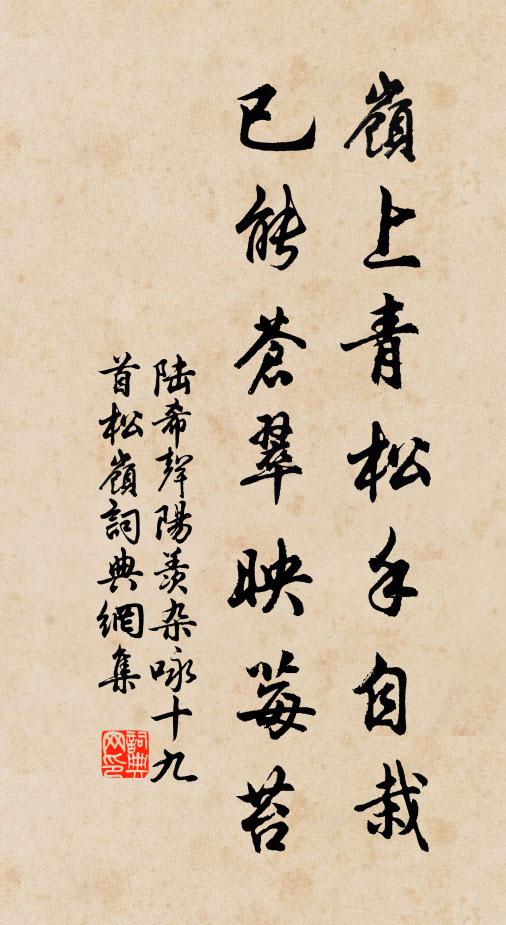 嶺上青松手自栽
已能蒼翠映莓苔
陆希聲陽羨杂咏十九
首松嶺詞典網集
詞典网印